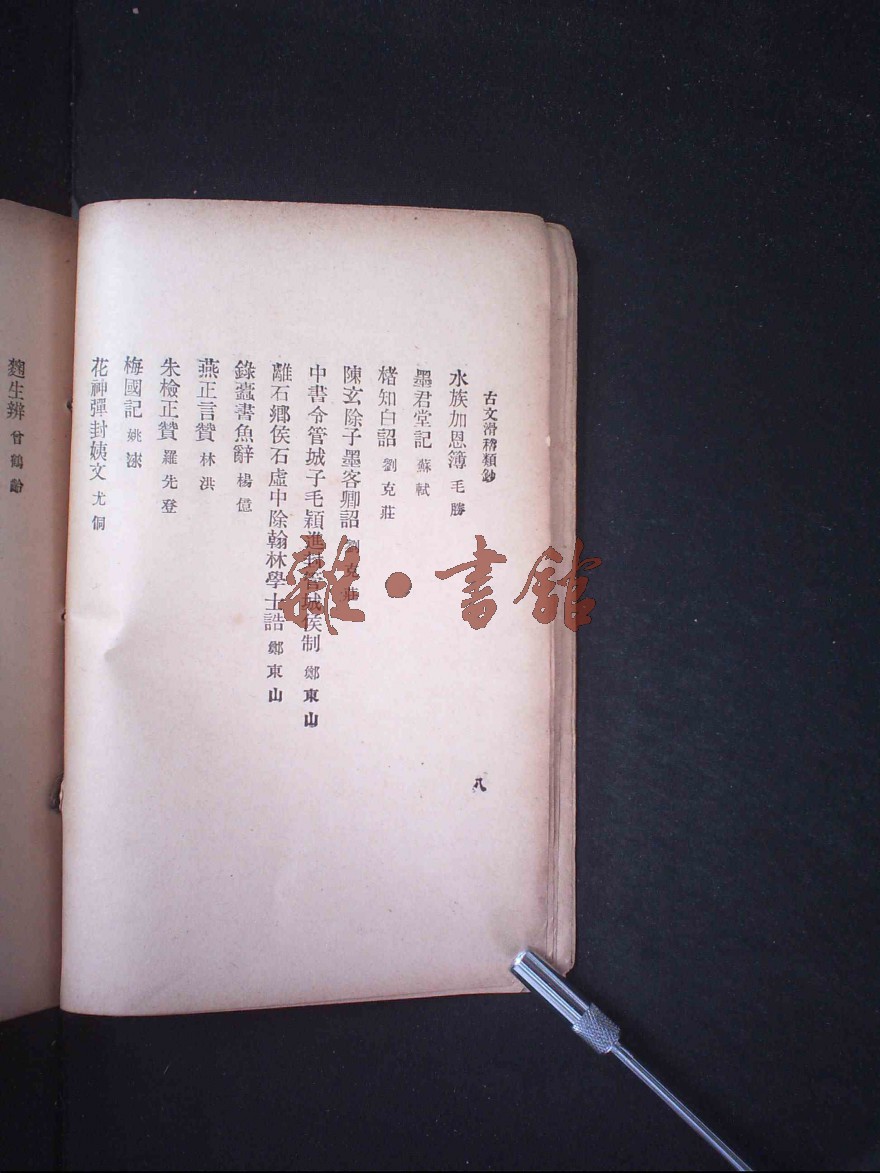 古文滑稽類鈔
八
水族加恩簿 毛勝
墨君堂記 蘇軾
楮知白詔 劉克莊
陳玄除子墨客卿詔 劉克莊
中書令管城子毛穎進封管城侯制 鄭東山
離石鄉侯石虛中除翰林學士誥 鄭東山
錄蠹書魚辭 楊億
燕正言贊 林洪
朱檢正贊 羅先登
梅國記 姚淶
花神彈封姨文 尤侗
麴生辨 曾鶴齡
雜·書館